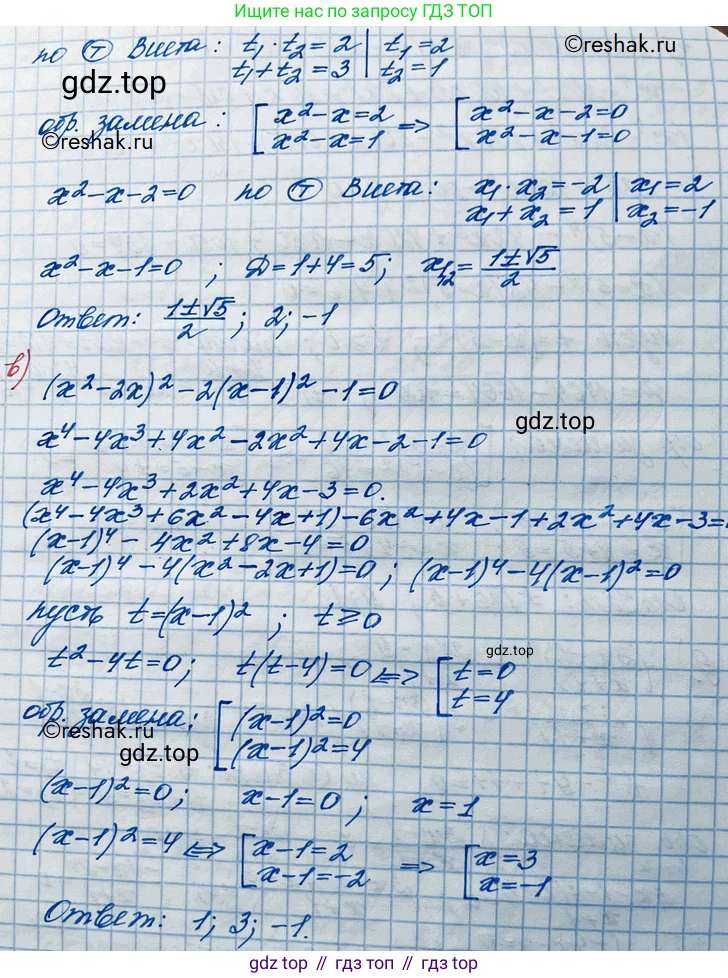 Ищите нас по запросу ГДЗ ТОП
по Т Виета: t₁ · t₂ = 2 | t₁ = 2
t₁ + t₂ = 3 | t₂ = 1
©reshak.ru
gdz.top
обр. замена: [ x² - x = 2 => [ x² - x - 2 = 0
x² - x = 1 x² - x - 1 = 0
©reshak.ru
x² - x - 2 = 0 по Т Виета: x₁ · x₂ = -2 | x₁ = 2
x₁ + x₂ = 1 | x₂ = -1
x² - x - 1 = 0 ; D = 1 + 4 = 5; x₁,₂ = (1 ± √5)/2
Ответ: (1 ± √5)/2; 2; -1
в)
(x² - 2x)² - 2(x - 1)² - 1 = 0
gdz.top
x⁴ - 4x³ + 4x² - 2x² + 4x - 2 - 1 = 0
x⁴ - 4x³ + 2x² + 4x - 3 = 0.
(x⁴ - 4x³ + 6x² - 4x + 1) - 6x² + 4x - 1 + 2x² + 4x - 3 =
(x - 1)⁴ - 4x² + 8x - 4 = 0
(x - 1)⁴ - 4(x² - 2x + 1) = 0 ; (x - 1)⁴ - 4(x - 1)² = 0
пусть t = (x - 1)² ; t ⩾ 0
gdz.top
t² - 4t = 0; t(t - 4) = 0 <=> [ t = 0
t = 4
обр. замена: [ (x - 1)² = 0
(x - 1)² = 4
©reshak.ru
gdz.top
(x - 1)² = 0; x - 1 = 0 ; x = 1
(x - 1)² = 4 <=> [ x - 1 = 2 => [ x = 3
x - 1 = -2 x = -1
Ответ: 1; 3; -1.
gdz.top // gdz.top // gdz.top // gdz.top